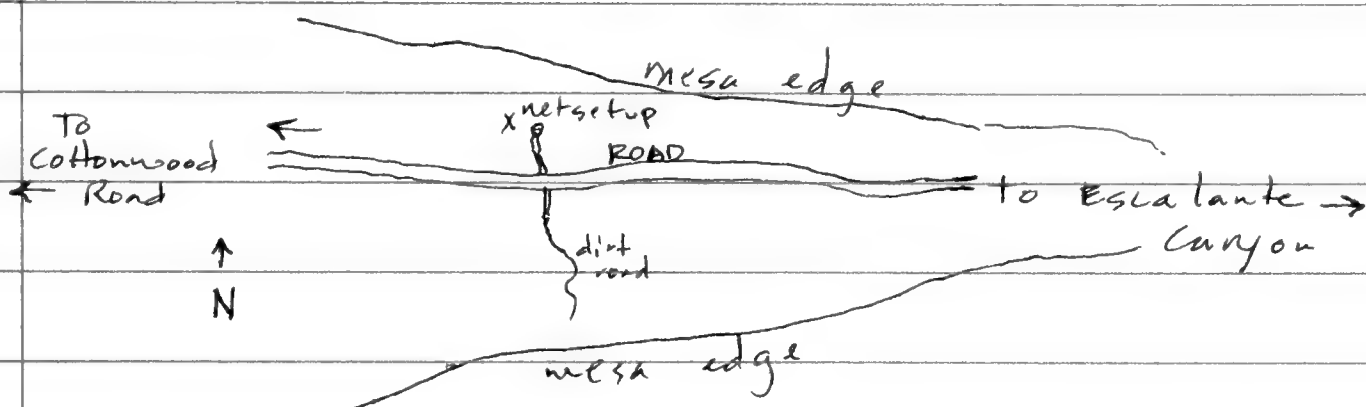 mesa edge
To
Cottonwood
← Road
←
x netsetup
ROAD
to Escalante →
Canyon
dirt
road
↑
N
mesa edge